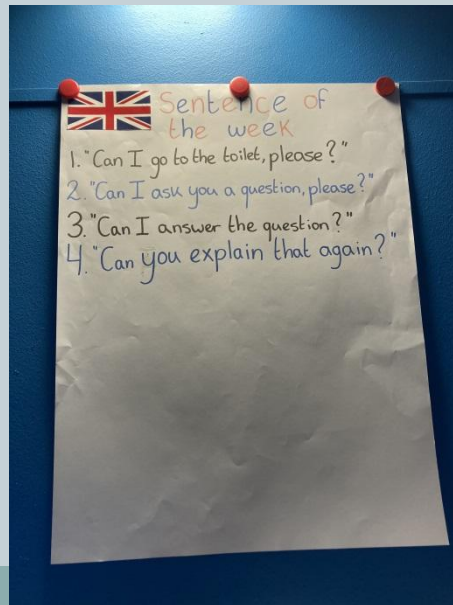 Sentence of
the week
1. "Can I go to the toilet, please?"
2. "Can I ask you a question, please?"
3. "Can I answer the question?"
4. "Can you explain that again?"